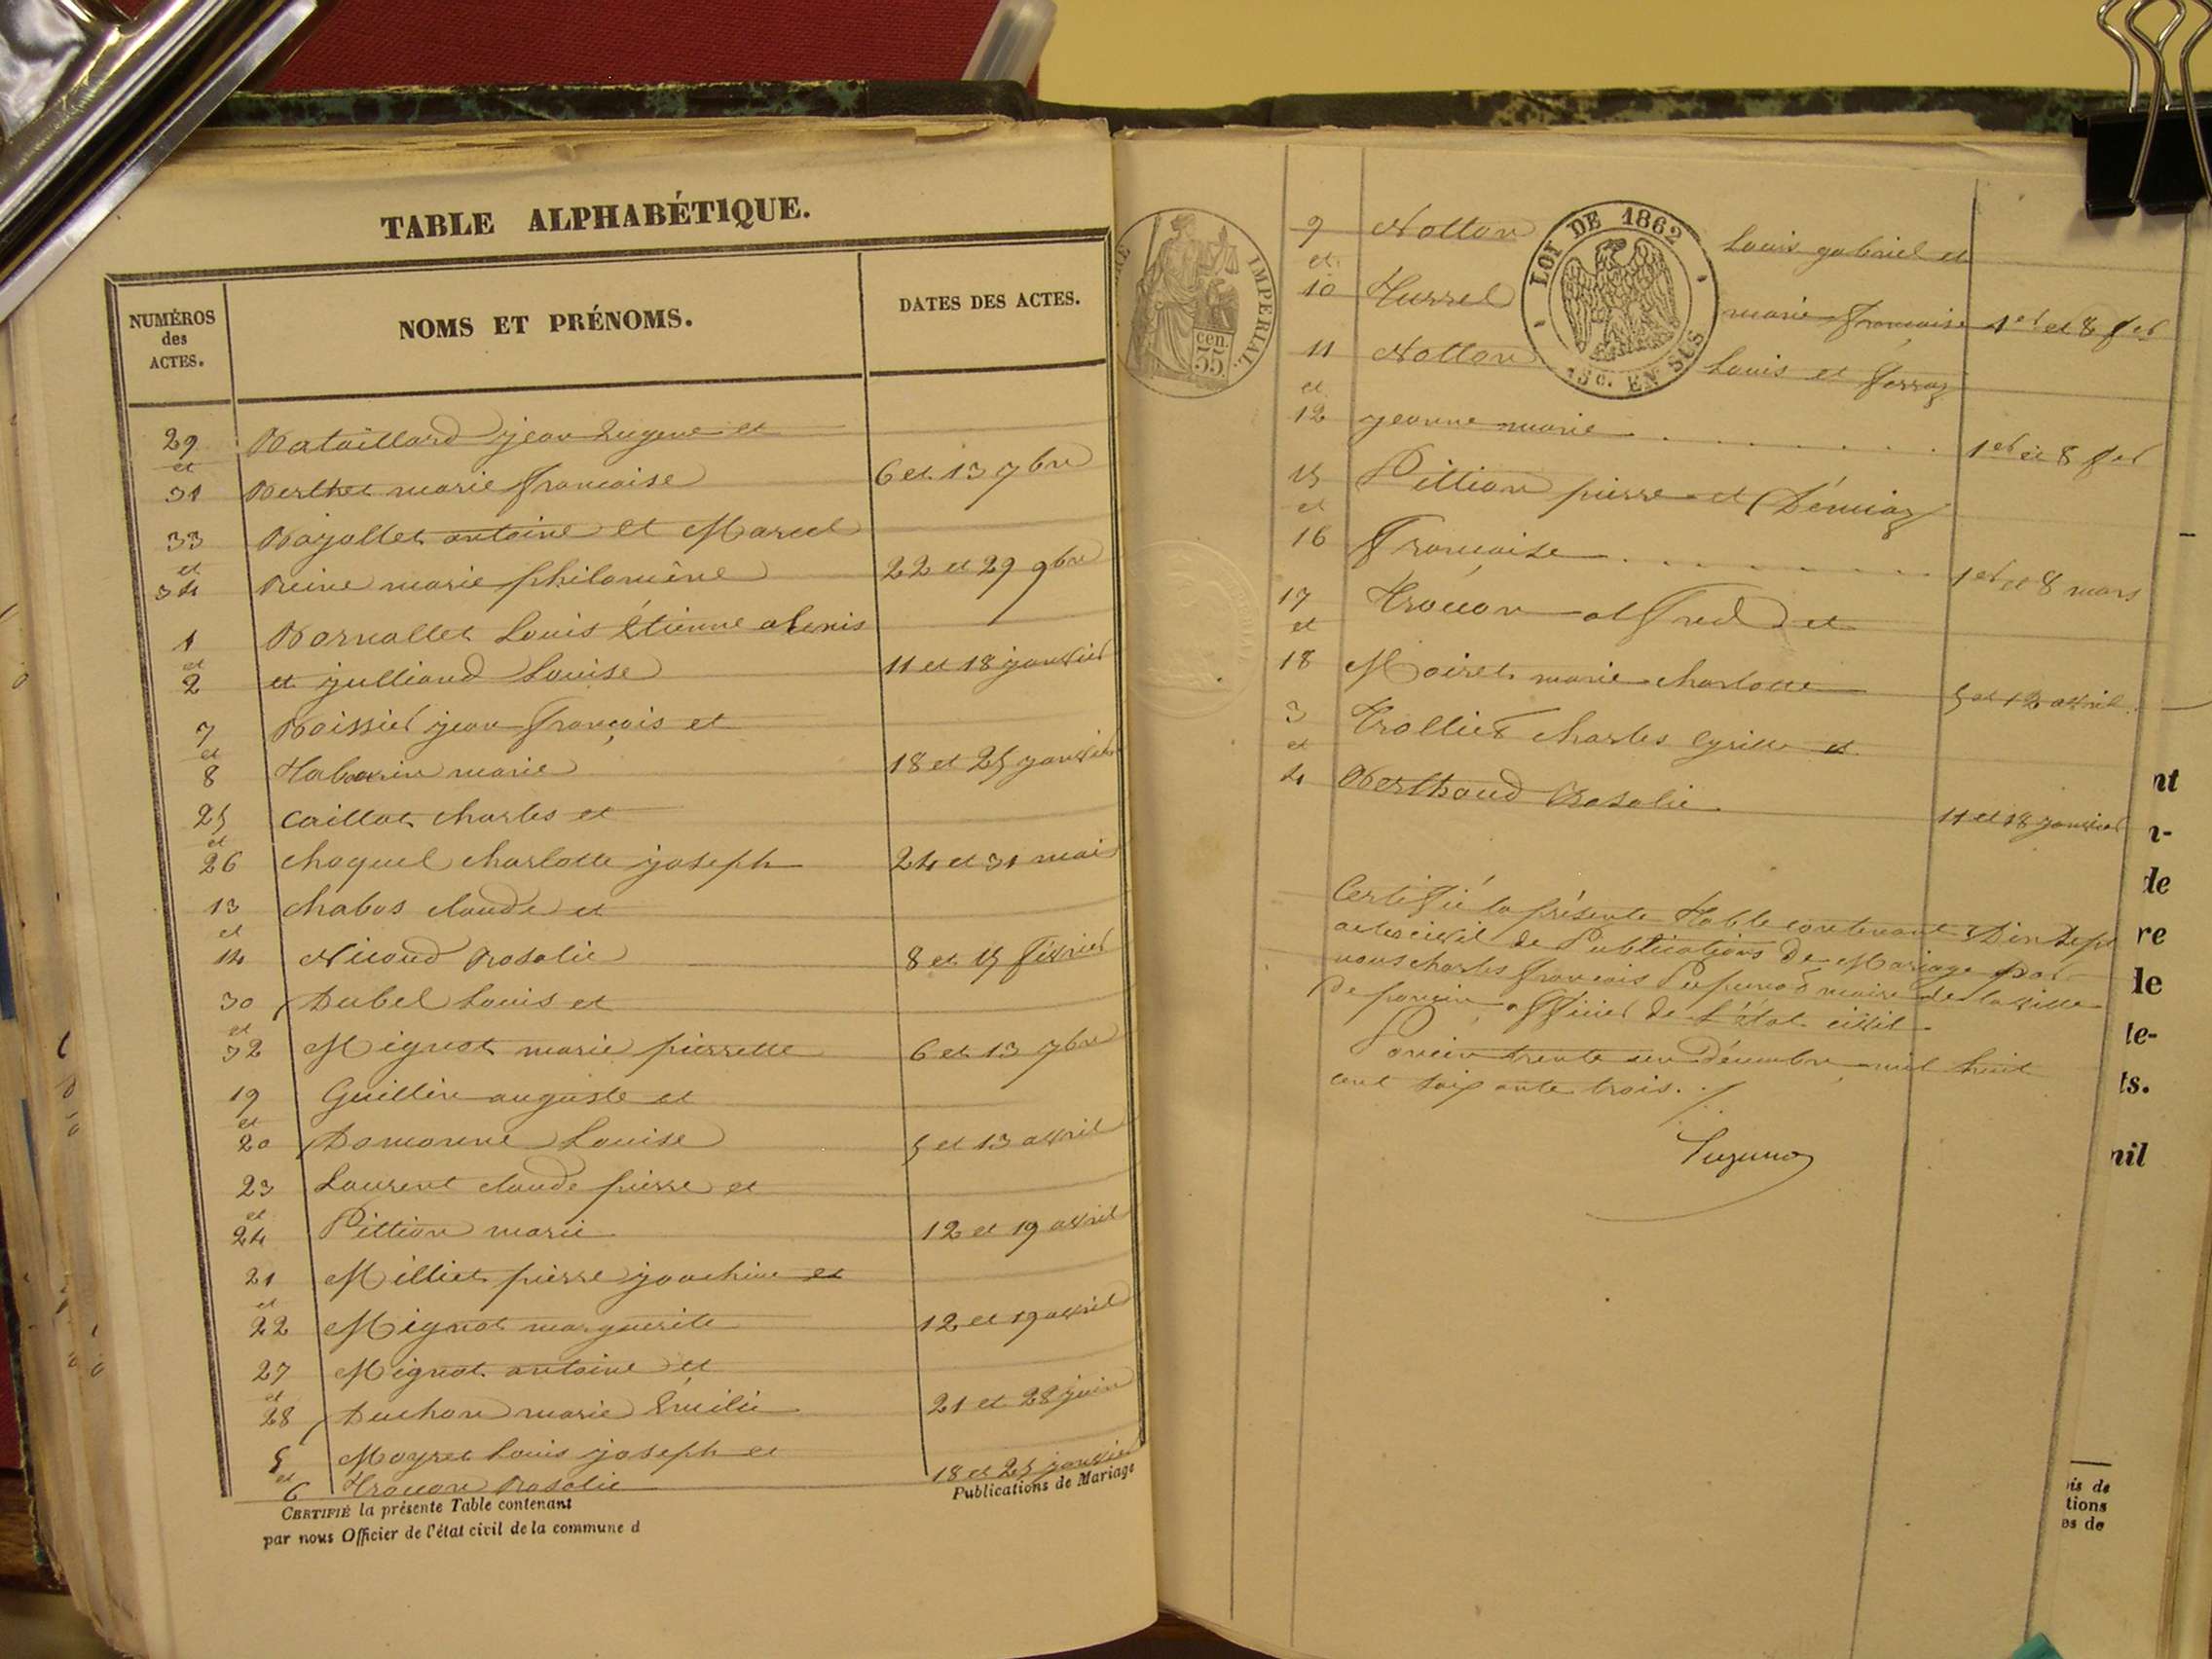 TABLE ALPHABÉTIQUE.
NUMÉROS
des
ACTES.
NOMS ET PRÉNOMS.
DATES DES ACTES.
29 Bataillard jean Eugene et
et
31 Berthet marie françoise 6 et 13 7bre
33 Bajollet antoine et Marcel
et
34 Reine marie philomène 22 et 29 9bre
1 Bornallet Louis Étienne alexis
et
2 et julliand Louise 11 et 18 janvier
7 Boissier jean françois et
et
8 Tabarin marie 18 et 25 janvier
25 Caillot charles et
et
26 choquel charlotte joseph 24 et 31 mai
13 chabos claude et
et
14 Nicoud rosalie 8 et 15 février
30 Dubel Louis et
et
32 Mignot marie pierrette 6 et 13 7bre
19 Guillin auguste et
et
20 Domonne Louise 5 et 13 avril
23 Laurent claude pierre et
et
24 Pittion marie 12 et 19 avril
21 Milliet pierre joachim et
et
22 Mignot marguerite 12 et 19 avril
27 Mignot antoine et
et
28 Duchon marie Émilie 21 et 28 juin
5 Moyret Louis joseph et
et
6 Trouon rosalie 18 et 25 janvier
CERTIFIÉ la présente Table contenant Publications de Mariage
par nous Officier de l'état civil de la commune d
IMPÉRIAL.
cen.
35
LOI DE 1862
15 c. EN SUS
9 Notton Louis gabriel et
et
10 Turrel marie françoise 1er et 8 fer
11 Notton Louis et ferraz
et
12 jeanne marie 1er et 8 fer
15 Pittion pierre et Démiaz
et
16 Françoise 1er et 8 mars
17 Trouon alfred et
et
18 Moiret marie charlotte 5 et 12 avril
3 Trollier charles Cyrille et
et
4 Berthoud Rosalie 11 et 18 janvier
Certifié la présente Table contenant Dix Sept
actes civil de Publications De Mariage par
nous charles françois maire de la ville
De poncin officier de L'état civil
Poncin trente un Décembre mil huit
cent soixante trois.
nt
n-
de
re
le
le-
ts.
nil
is de
tions
es de